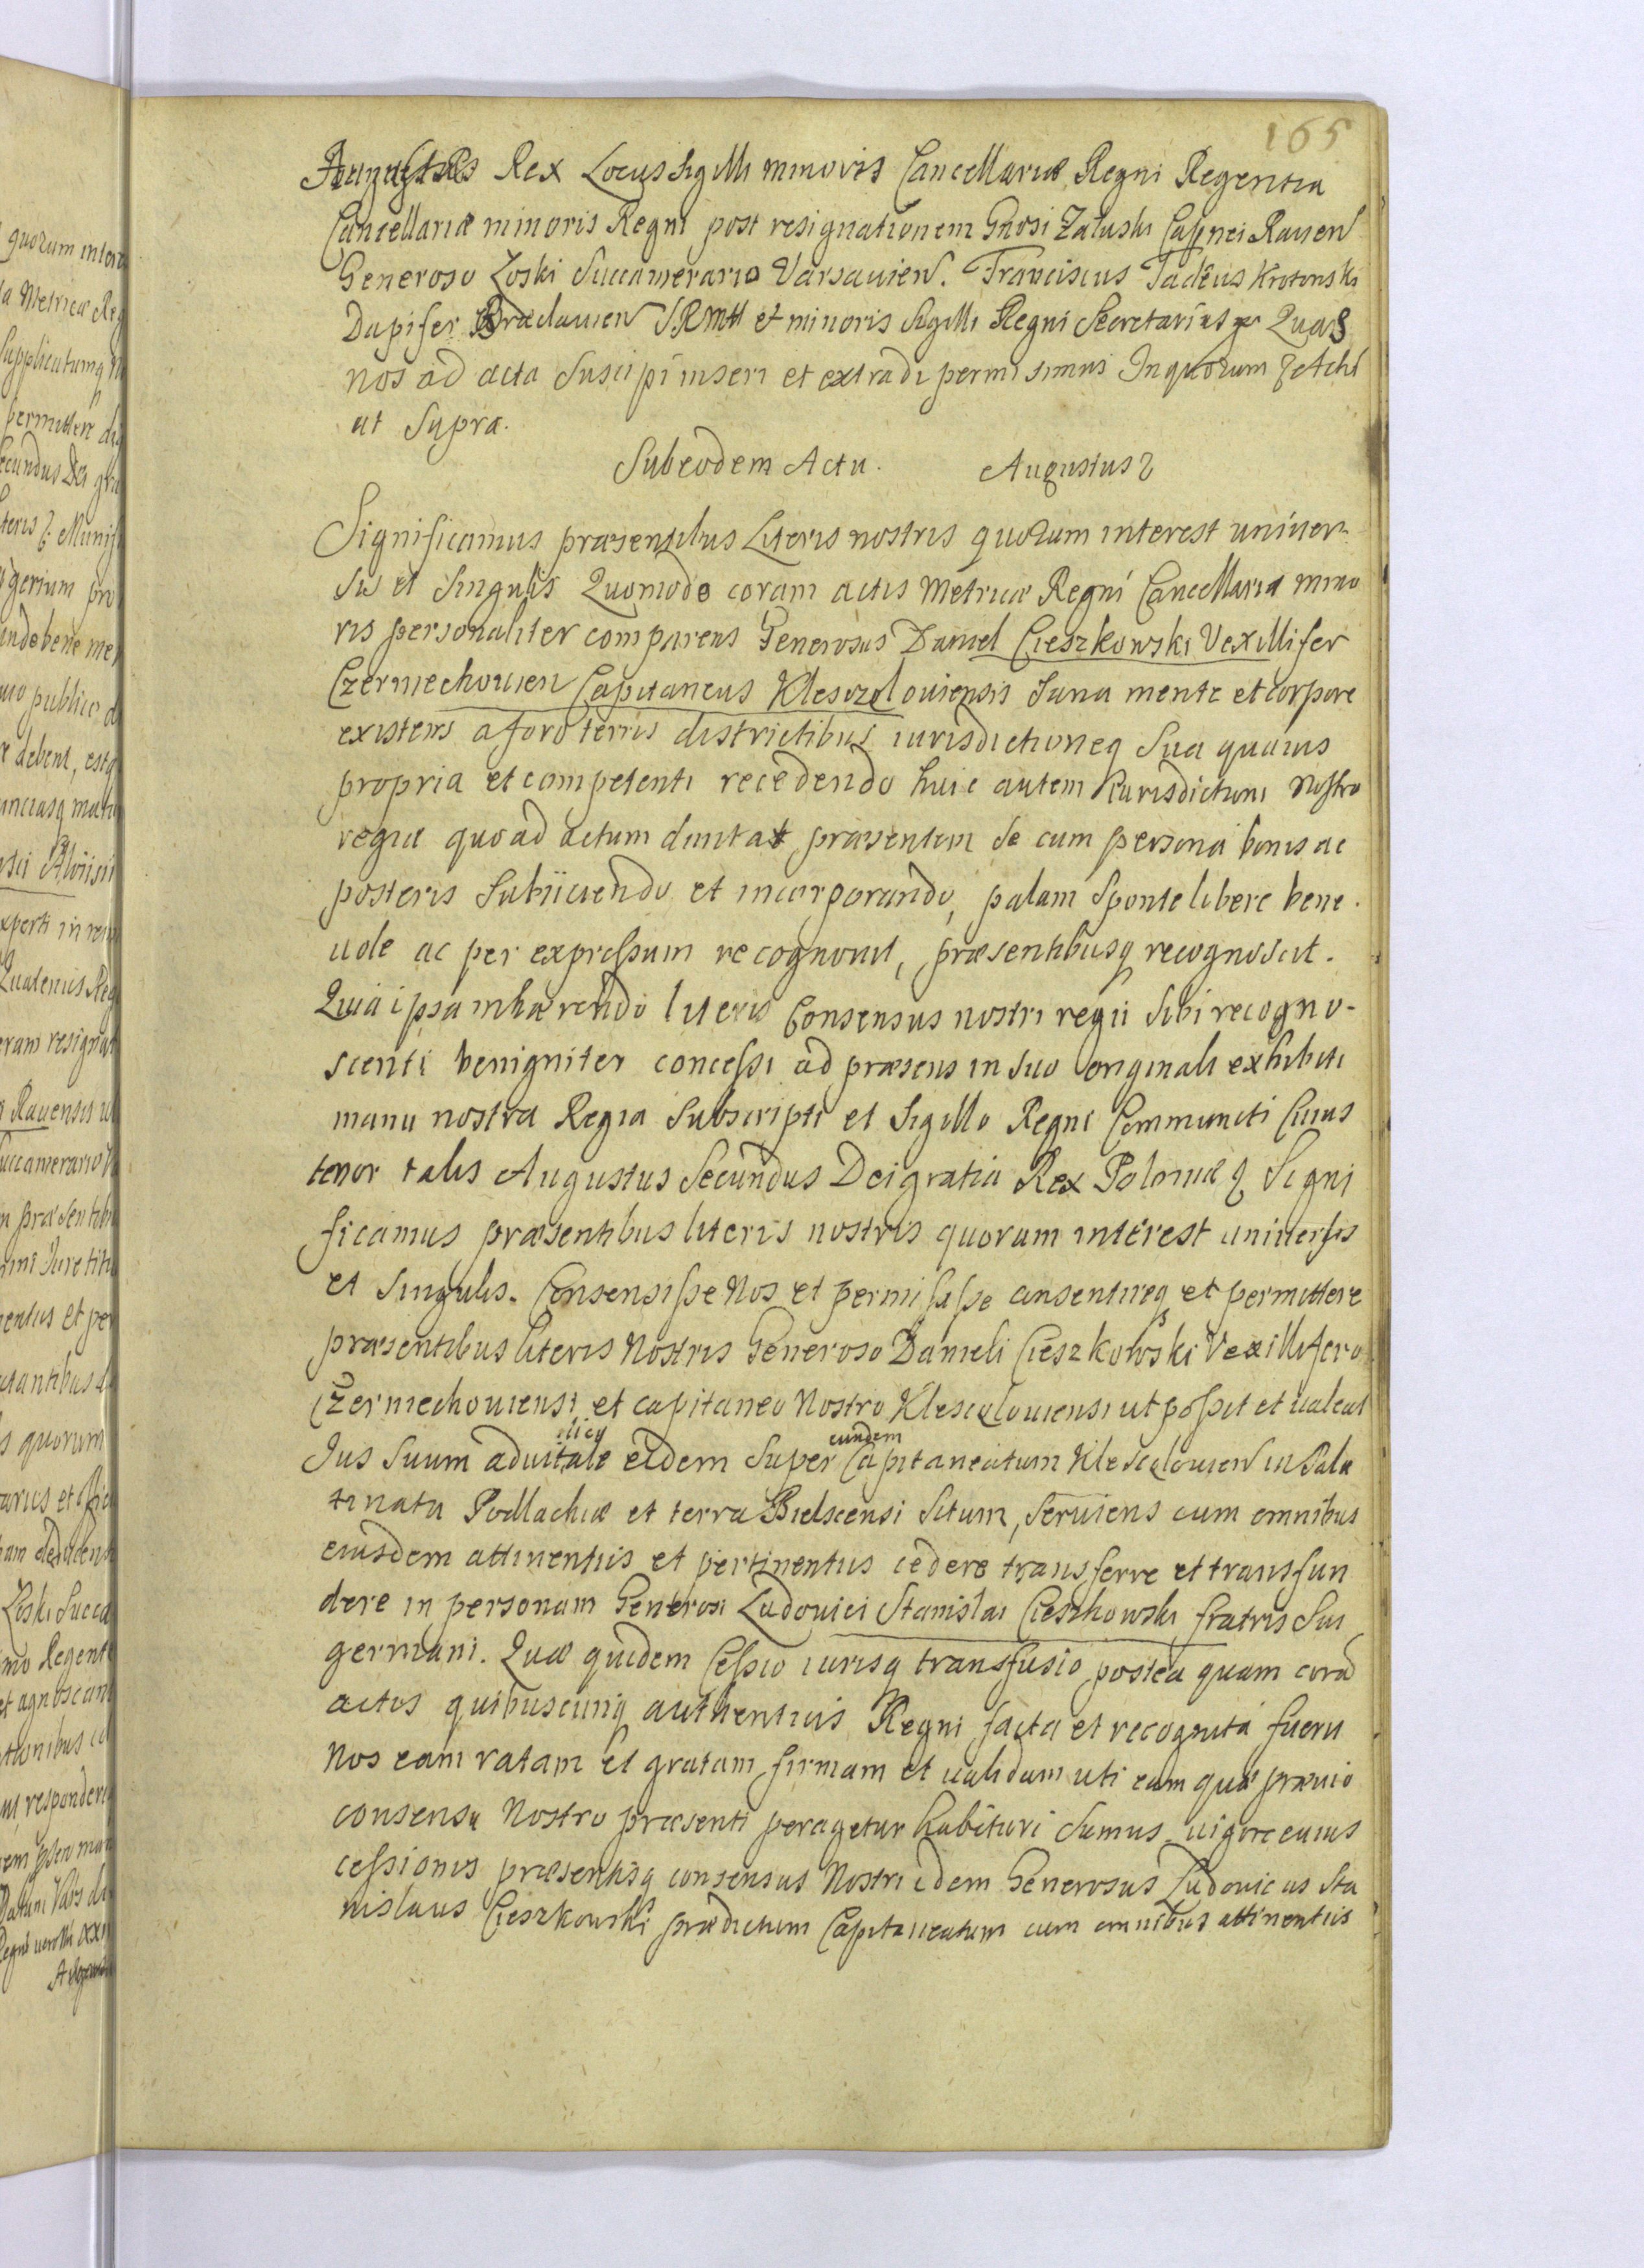 165
Augustus Rex Locus Sigilli minoris Cancellariæ Regni Regentia
Cancellariæ minoris Regni post resignationem Gnosi Załuski Capnei Rauen
Generoso Zoski Succamerario Varsauien. Franciscus Tadeus Krotonski
Dapifer Braclauien S R Mtt et minoris Sigilli Regni Secretarius Quas
nos ad acta Suscipi inseri et extradi permisimus In quorum
ut Supra.
Sub eodem Actu. Augustus 2
Significamus præsentibus Literis nostris quorum interest univer-
sis et Singulis Quomodo coram actis Metricæ Regni Cancellaria mino
ris personaliter comparens Generosus Daniel Cieszkowski Vexillifer
Czerniechouien Capitaneus Klesozelouiensis Sana mente et corpore
existens a foro terris districtibus iurisdictioneq Sua quauis
propria et competenti recedendo huic autem Iurisdictioni Nostro
regiæ quo ad actum duntat præsentem se cum persona bonis ac
posteris Subiiciendo et incorporando, palam Sponte libere bene.
uole ac per expressum recognouit, præsentibusq recognoscit.
Quia ipsa inhærendo literis Consensus nostri regii Sibi recogno-
scenti benigniter concessi ad præsens in Suo originali exhibiti
manu nostra Regia Subscripti et Sigillo Regni Communiti Cuius
tenor talis Augustus Secundus Dei gratia Rex Poloniæ & Signi
ficamus præsentibus literis nostris quorum interest uniuersis
et Singulis. Consensisse Nos et permisisse consentireq et permittere
præsentibus literis Nostris Generoso Danieli Cieszkowski Vexillifero
Czerniechouiensi et capitaneo Nostro Klescelouiensi ut possit et ualeat
Ius Suum aduitale eidem Super eundem Capitaneatum Klescelouien in Pala
tinatu Podlachiæ et terra Bielscensi Situm, Seruiens cum omnibus
eiusdem attinentiis et pertinentiis cedere transferre et transfun
dere in personam Generosi Ludouici Stanislai Cieszkowski fratris Sui
germani. Quæ quidem Cessio iurisq transfusio postea quam corã
actis quibuscunq authenticis Regni facta et recognita fuerit
Nos eam ratam et gratam firmam et ualidam uti eam quæ præuio
consensu Nostro præsenti peragetur habituri Sumus uigore cuius
cessionis præsentisq consensus Nostri idem Generosus Ludouicus Sta
nislaus Cieszkowski prædictum Capitaneatum cum omnibus attinentiis